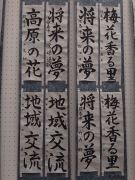 梅花香る里
将来の夢
将来の夢
高原の花
梅花香る里
将来の夢
地域交流
地域交流